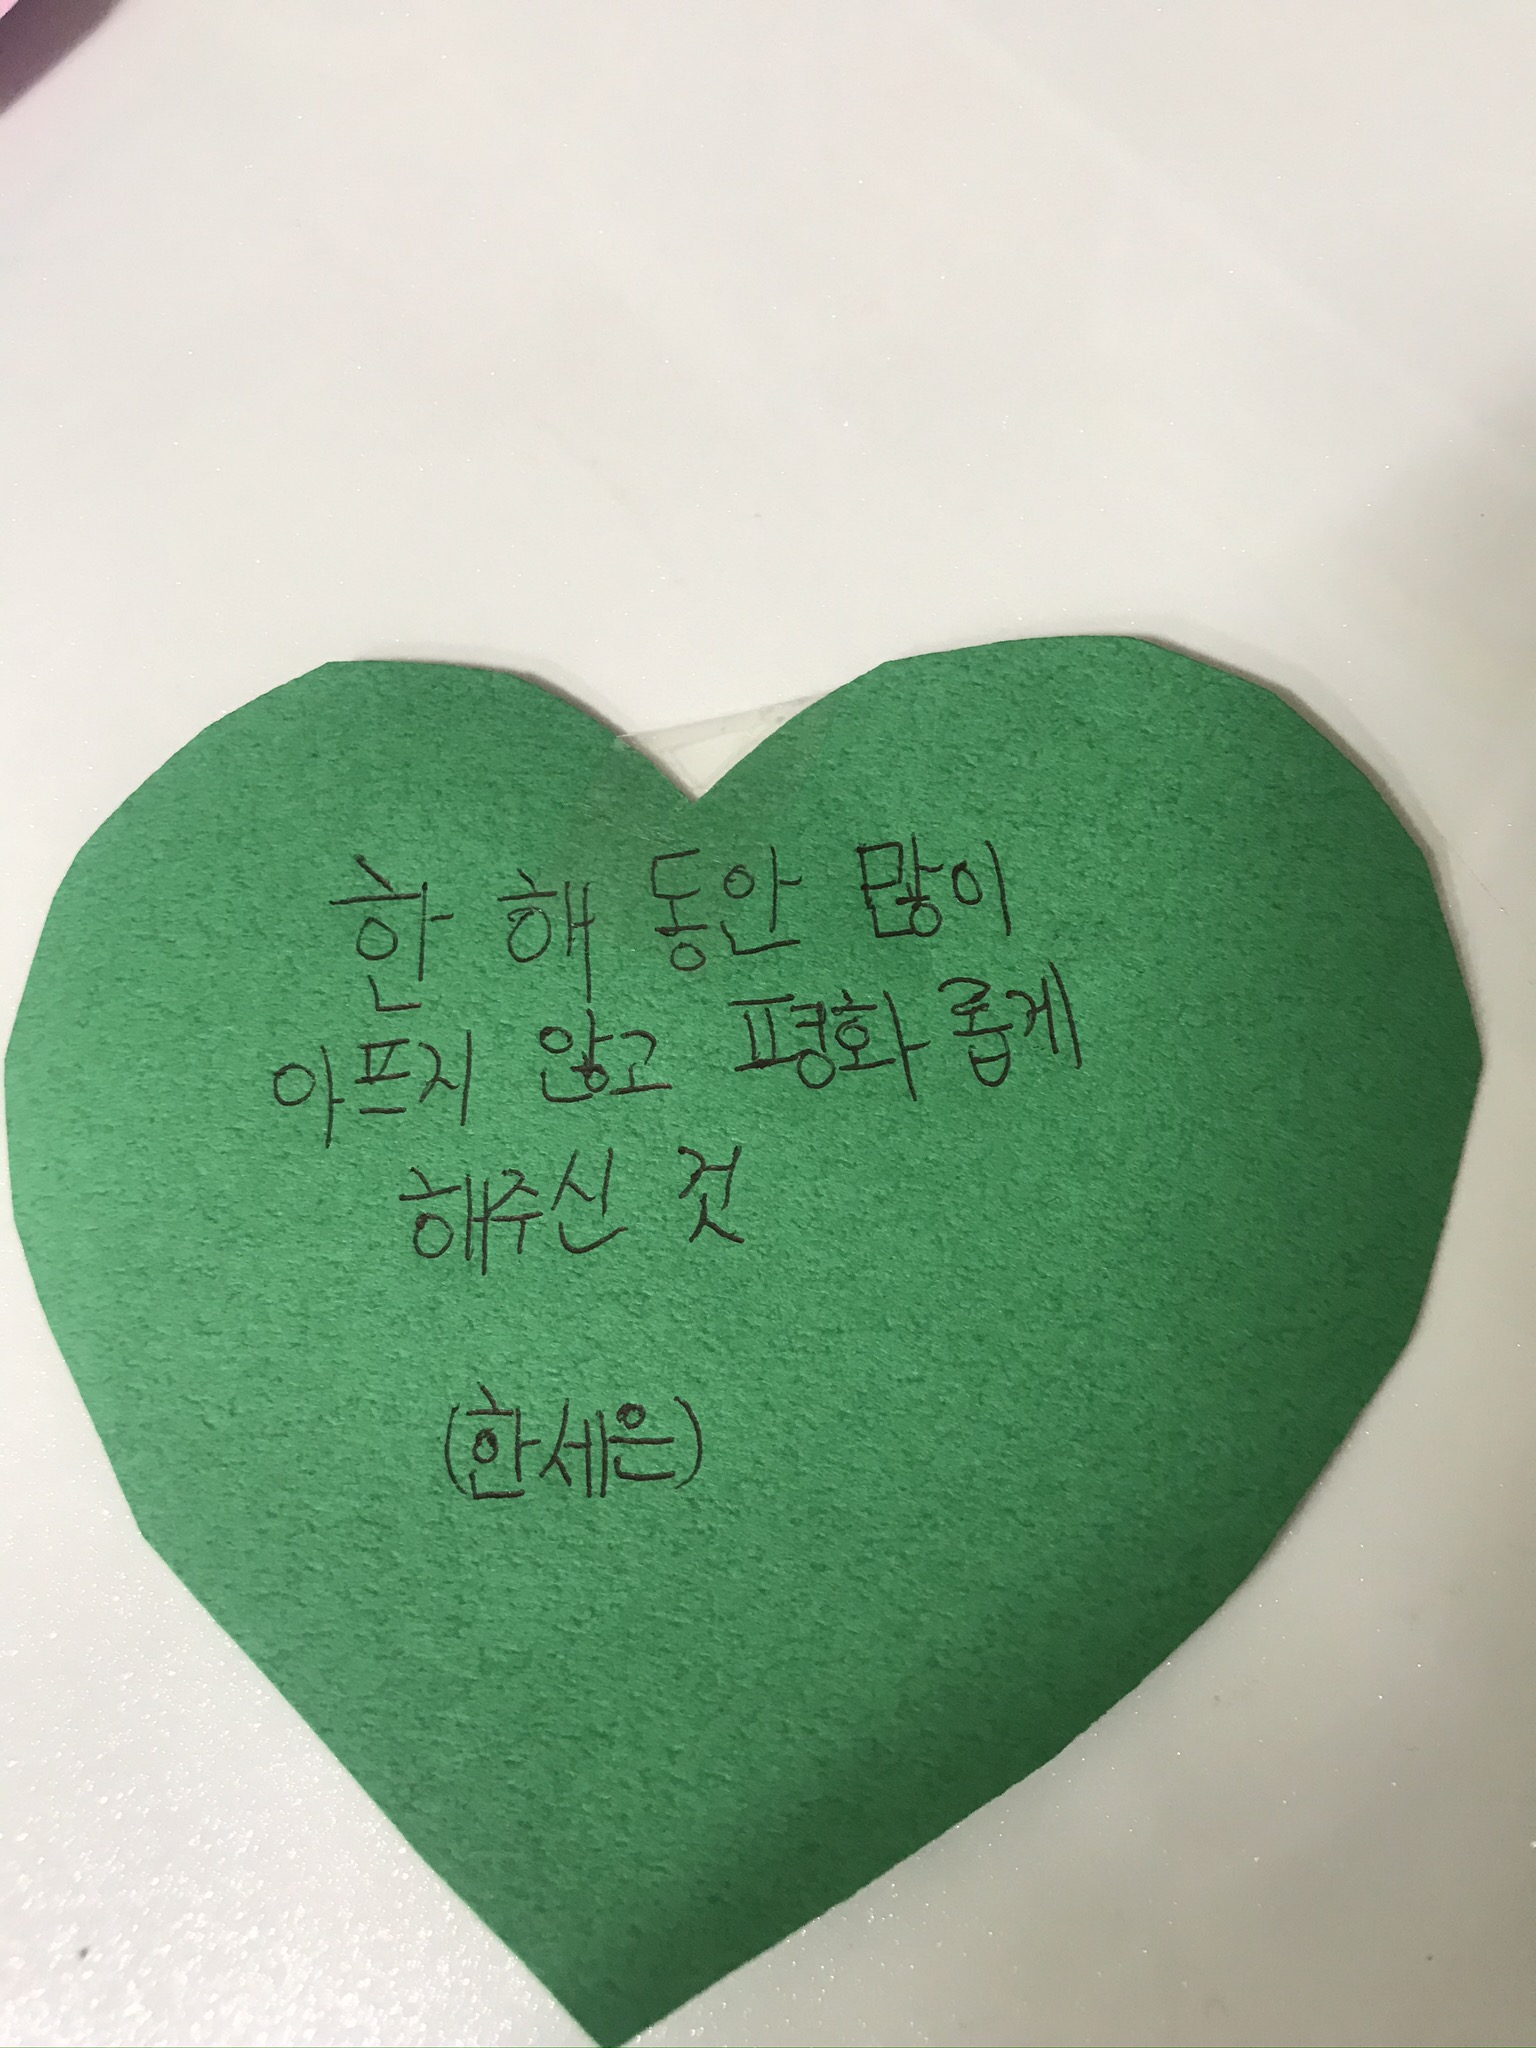 한 해 동안 많이
아프지 않고 평화롭게
해주신 것
(한세은)